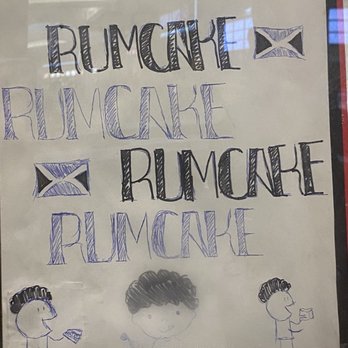 RUMCAKE
RUMCAKE
RUMCAKE
RUMCAKE